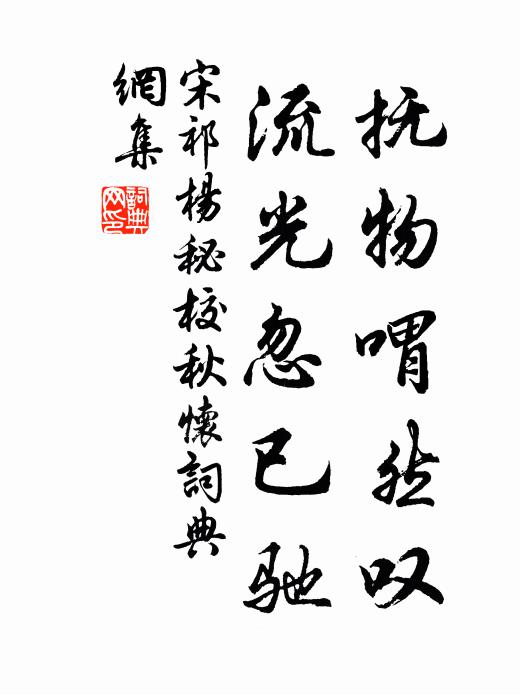 抚物喟然叹
流光忽已驰
宋祁杨秘校秋怀词典
網集
詞典
网印